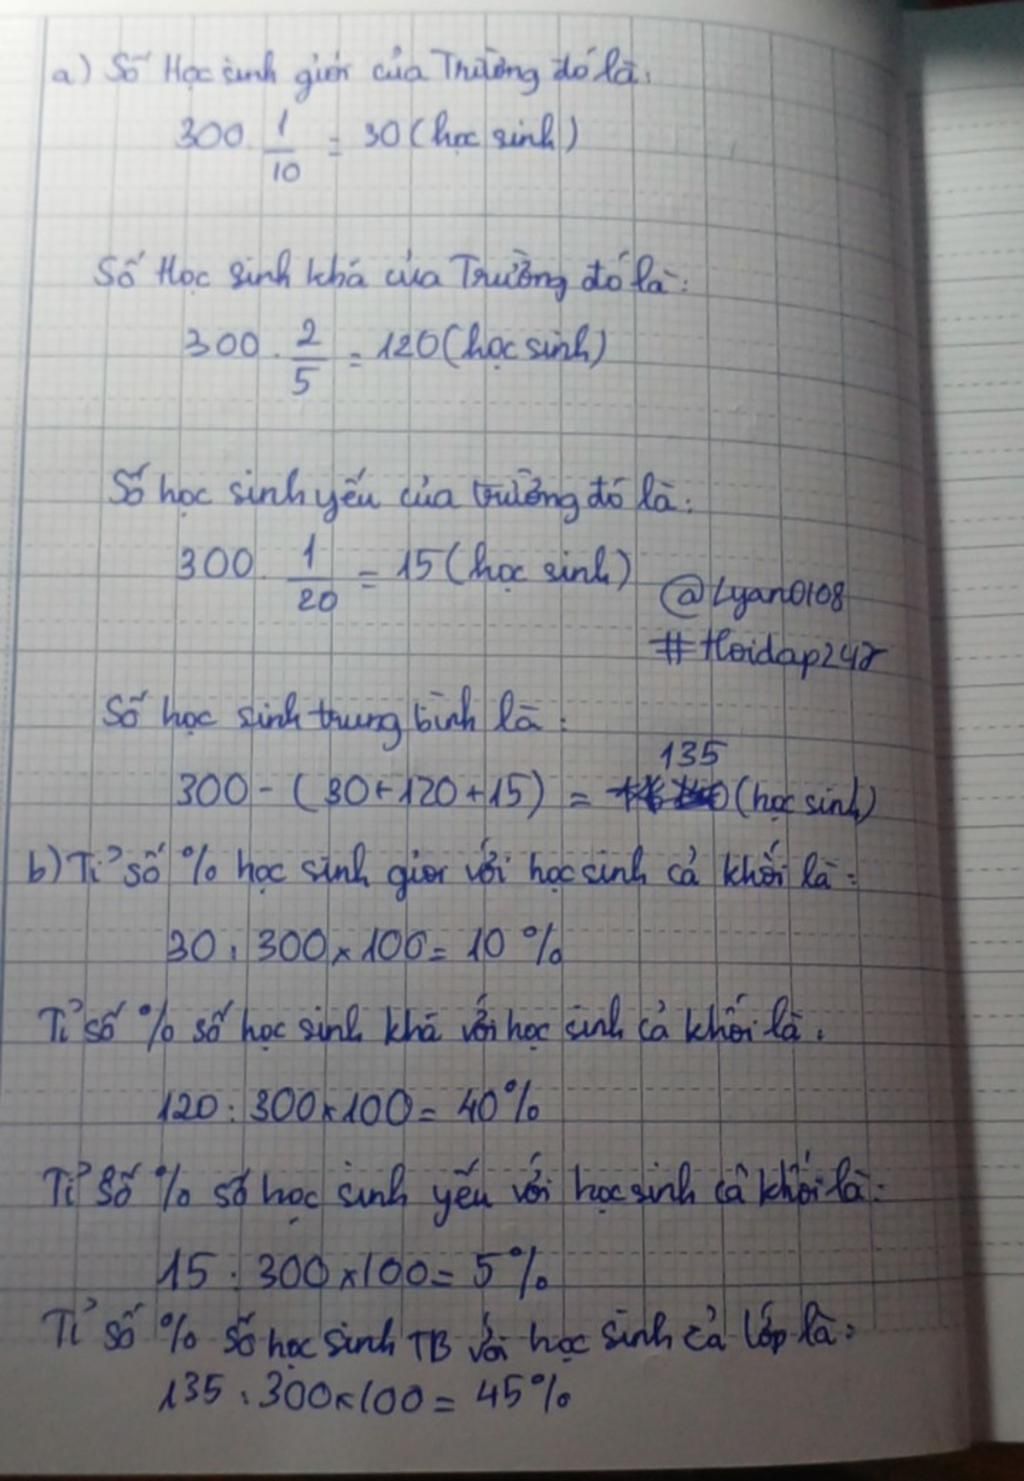 a) Số Học sinh giỏi của Trường đó là:
300 . 1/10 = 30 (học sinh)
Số Học sinh khá của Trường đó là:
300 . 2/5 = 120 (học sinh)
Số học sinh yếu của trường đó là:
300 . 1/20 = 15 (học sinh)
@Lyan0108
#Hoidap247
Số học sinh trung bình là:
300 - (30+120+15) = 135 (học sinh)
b) Tỉ số % học sinh giỏi với học sinh cả khối là:
30 : 300 x 100 = 10 %
Tỉ số % số học sinh khá với học sinh cả khối là:
120 : 300 x 100 = 40 %
Tỉ số % số học sinh yếu với học sinh cả khối là:
15 : 300 x 100 = 5 %
Tỉ số % số học sinh TB với học sinh cả lớp là:
135 : 300 x 100 = 45 %